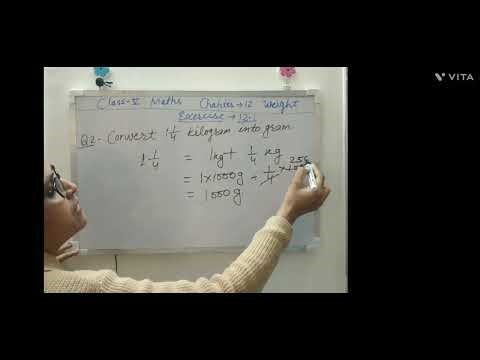 Class-V Maths Chapter→12 Weight
Exercise→12.1
Q2- Convert 1 1/4 kilogram into gram
1 1/4 = 1kg + 1/4 kg
= 1×1000g + 1/4 ×
= 1000g
VITA